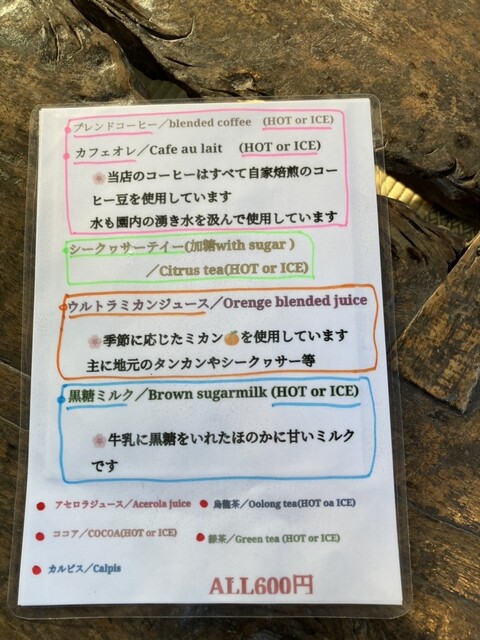 ブレンドコーヒー／blended coffee (HOT or ICE)
カフェオレ／Cafe au lait (HOT or ICE)
🌸当店のコーヒーはすべて自家焙煎のコー
ヒー豆を使用しています
水も園内の湧き水を汲んで使用しています
シークヮサーティー(加糖with sugar )
／Citrus tea(HOT or ICE)
ウルトラミカンジュース／Orenge blended juice
🌸季節に応じたミカン🍊を使用しています
主に地元のタンカンやシークヮサー等
黒糖ミルク／Brown sugarmilk (HOT or ICE)
🌸牛乳に黒糖をいれたほのかに甘いミルク
です
アセロラジュース／Acerola juice
烏龍茶／Oolong tea(HOT oa ICE)
ココア／COCOA(HOT or ICE)
緑茶／Green tea (HOT or ICE)
カルピス／Calpis
ALL600円